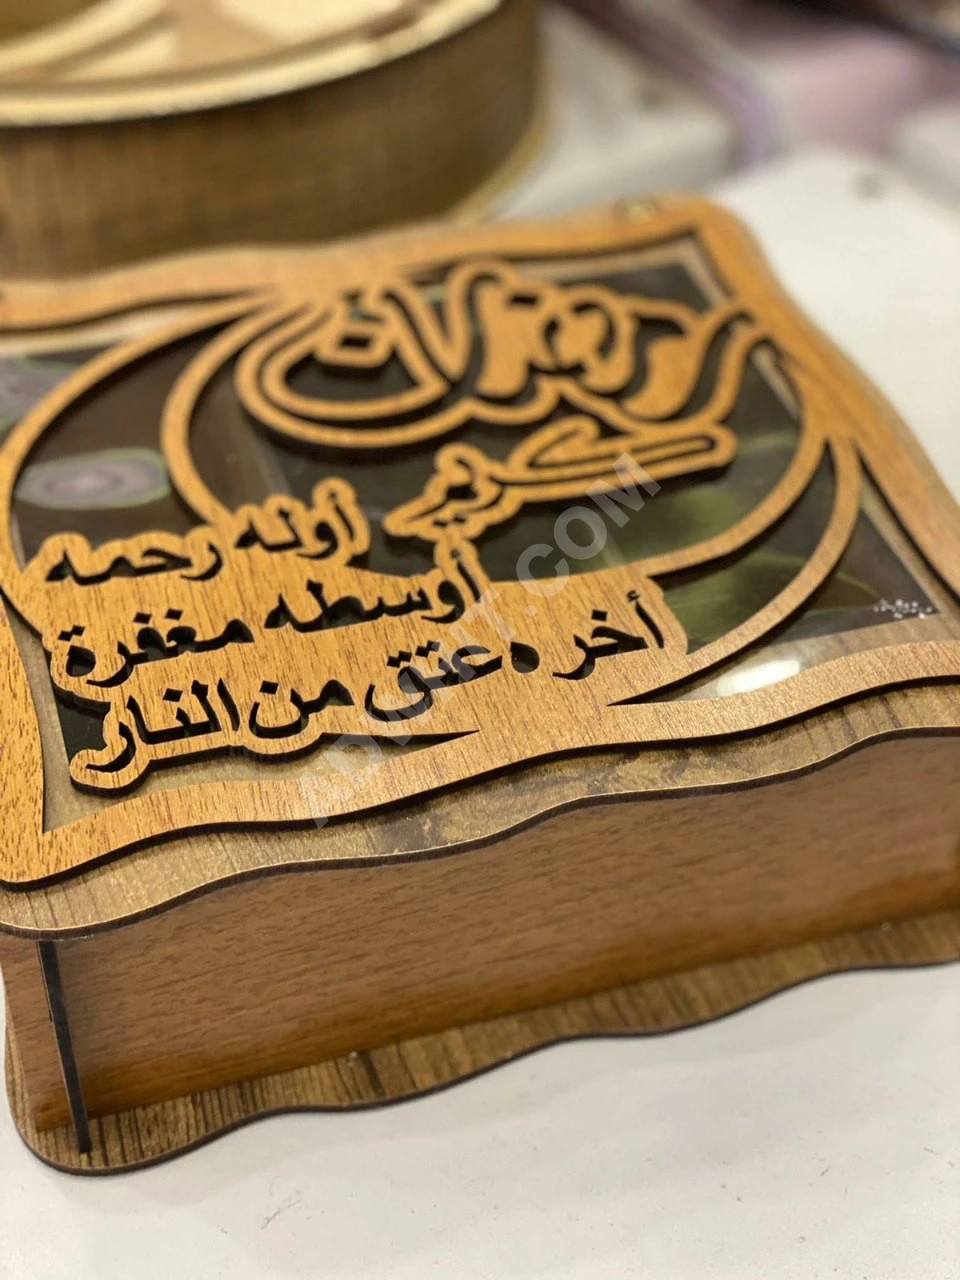 رمضان
كريم
أوله رحمه
أوسطه مغفرة
أخره عتق
من النار
ADWHIT.COM